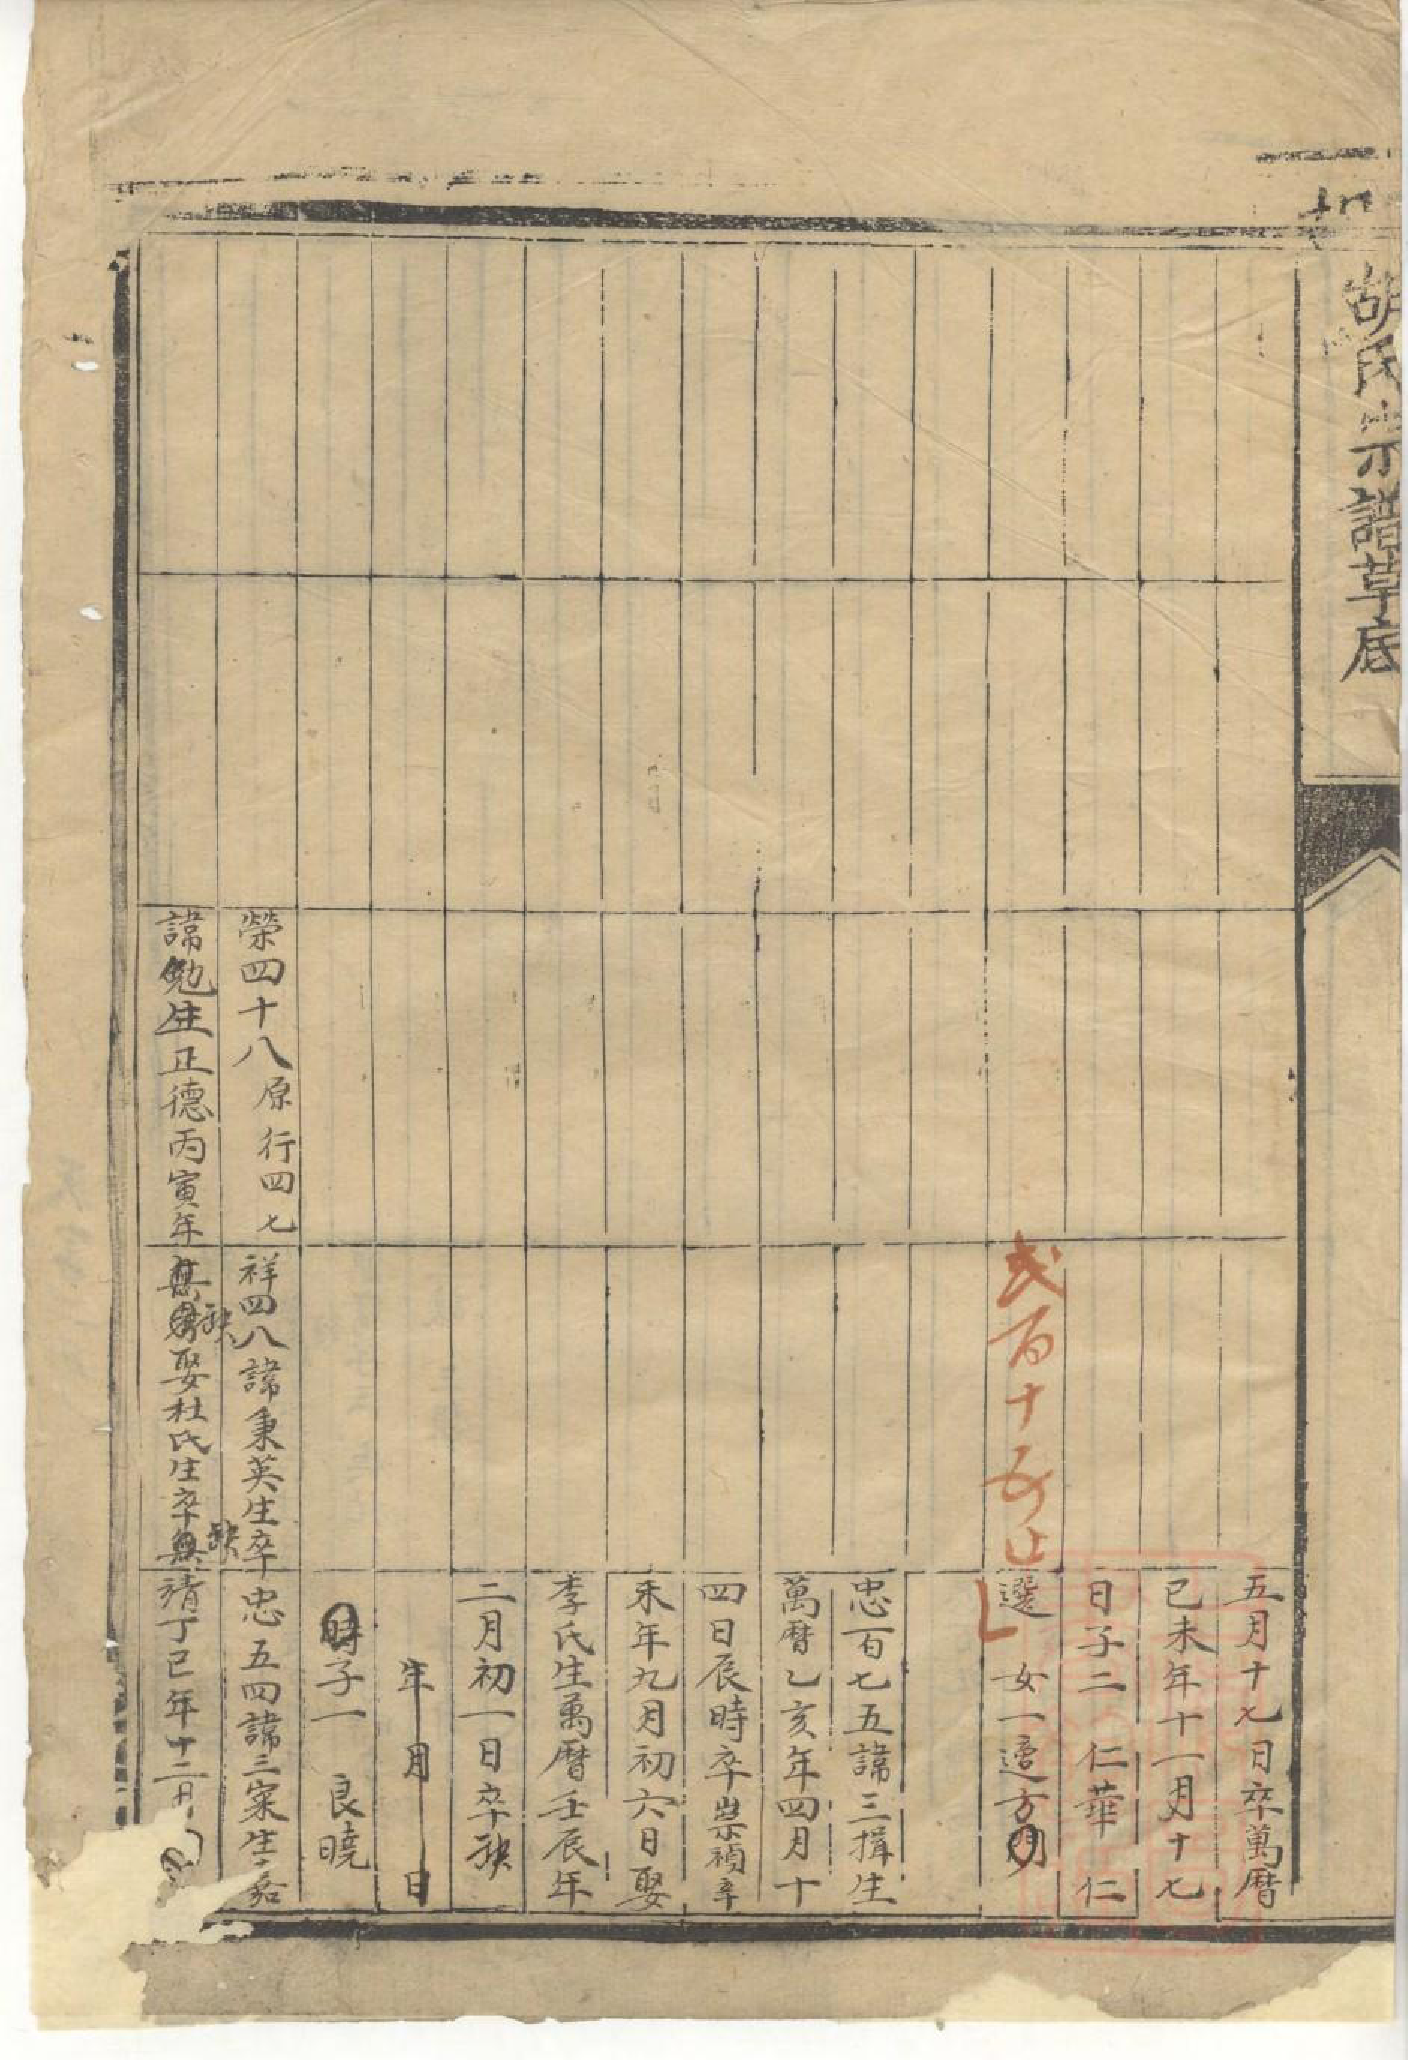 胡氏宗譜草底
五月十七日卒萬曆
己未年十一月十七
日子二 仁華 仁
選 女一適方
弍百十五止
忠一百七五諱三揖生
萬曆乙亥年四月十
四日辰時卒崇禎辛
未年九月初六日娶
李氏生萬曆壬辰年
二月初一日卒缺
年 月 日
時子一 良曉
榮四十八原行四七
祥四八諱秉英生卒
忠五四諱三寀生嘉
諱勉生正德丙寅年
缺娶杜氏生卒缺
靖丁巳年十二月